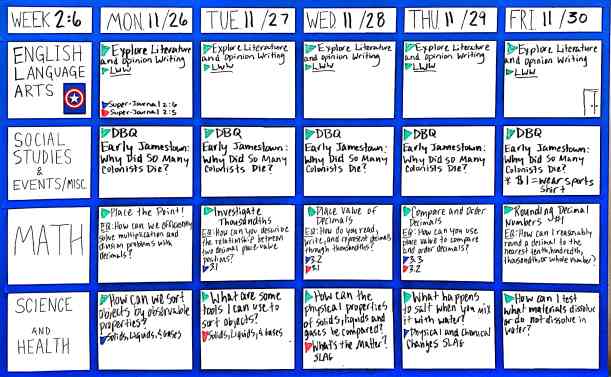 WEEK 2:6
MON 11/26
TUE 11/27
WED 11/28
THU 11/29
FRI 11/30
ENGLISH
LANGUAGE
ARTS
Explore Literature
and Opinion Writing
LWW
Super-Journal 2:6
Super-Journal 2:5
Explore Literature
and Opinion Writing
LWW
Explore Literature
and Opinion Writing
LWW
Explore Literature
and Opinion Writing
LWW
Explore Literature
and Opinion Writing
LWW
SOCIAL
STUDIES
&
EVENTS/MISC.
DBQ
Early Jamestown:
Why Did So Many
Colonists Die?
DBQ
Early Jamestown:
Why Did So Many
Colonists Die?
DBQ
Early Jamestown:
Why Did So Many
Colonists Die?
DBQ
Early Jamestown:
Why Did So Many
Colonists Die?
DBQ
Early Jamestown:
Why Did So Many
Colonists Die?
* $1 = wear sports
shirt
MATH
Place the Point!
EQ: How can we efficiently
solve multiplication and
division problems with
decimals?
Investigate
Thousandths
EQ: How can you describe
the relationship between
two decimal place-value
positions?
3.1
Place Value of
Decimals
EQ: How do you read,
write, and represent decimals
through thousandths?
3.2
3.1
Compare and Order
Decimals
EQ: How can you use
place value to compare
and order decimals?
3.3
3.2
Rounding Decimal
Numbers
EQ: How can I reasonably
round a decimal to the
nearest tenth, hundredth,
thousandth or whole number?
SCIENCE
AND
HEALTH
How can we sort
objects by observable
properties?
Solids, Liquids, & Gases
What are some
tools I can use to
sort objects?
Solids, Liquids, & Gases
How can the
physical properties
of solids, liquids and
gases be compared?
What's the Matter?
SLAG
What happens
to salt when you mix
it with water?
Physical and Chemical
Changes SLAG
How can I test
what materials dissolve
or do not dissolve in
water?